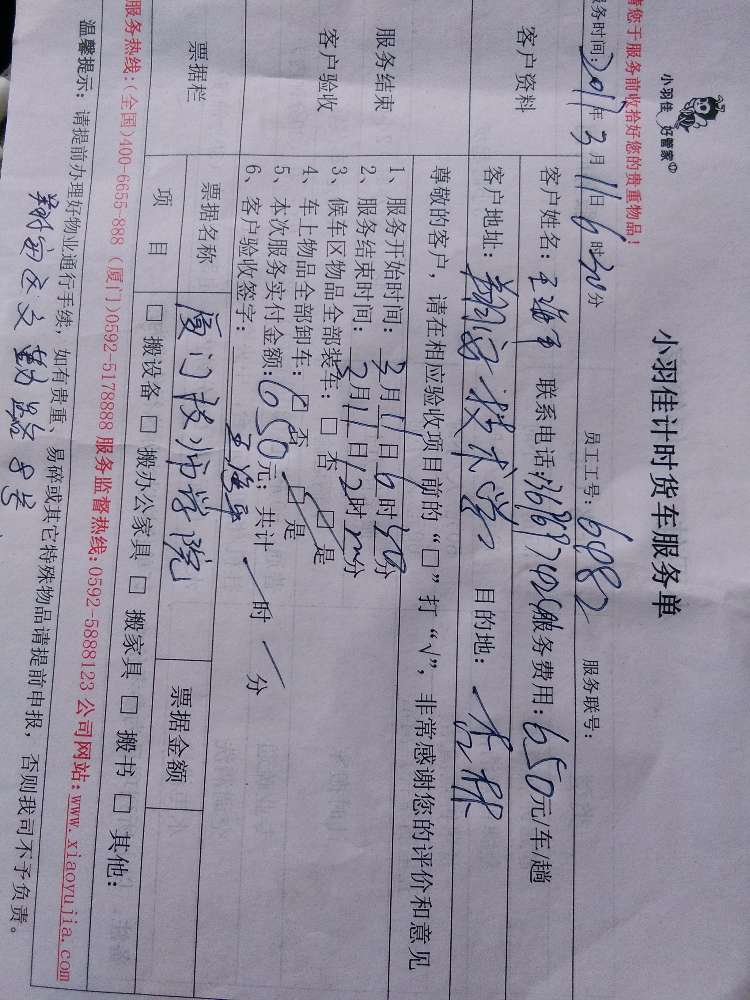 小羽佳 好管家
小羽佳计时货车服务单
请您于服务前收拾好您的贵重物品!
服务时间: 2011年3月11日6时30分 员工工号: 6982 服务联号:
客户资料
客户姓名: 联系电话: 服务费用: 650元/车/趟
客户地址: 翔安技术学 目的地: 杏林
服务结束
客户验收
尊敬的客户,请在相应验收项目前的“□”打“√”,非常感谢您的评价和意见
1、服务开始时间: 3月11日6时30分
2、服务结束时间: 3月11日12时 分
3、候车区物品全部装车: □ 否 □ 是
4、车上物品全部卸车: □ 否 □ 是
5、本次服务实付金额: 650元; 共计 / 时 / 分
6、客户验收签字:
票据栏
票据名称 厦门技师学院 票据金额
项 目 □ 搬设备 □ 搬办公家具 □ 搬家具 □ 搬书 □ 其他:
服务热线:(全国)400-6655-888 (厦门)0592-5178888 服务监督热线:0592-5888123 公司网站:www.xiaoyujia.com
温馨提示: 请提前办理好物业通行手续,如有贵重、易碎或其它特殊物品请提前申报,否则我司不予负责。
翔安区文 路 号